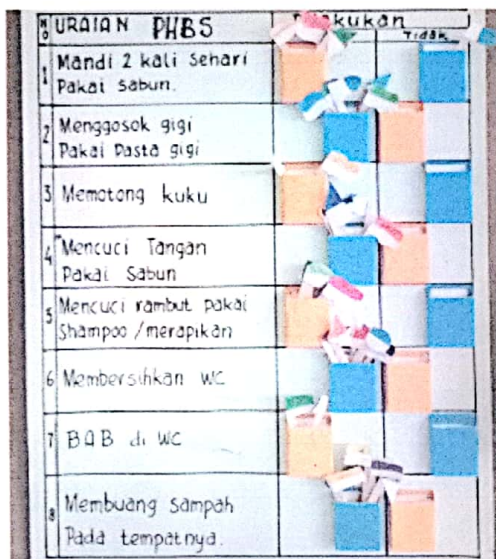 NO URAIAN PHBS
Tidak
1 Mandi 2 kali Sehari
Pakai Sabun.
2 Menggosok gigi
Pakai Pasta gigi
3 Memotong kuku
4 Mencuci Tangan
Pakai Sabun
5 Mencuci rambut pakai
Shampoo / merapikan
6 Membersihkan WC
7 BAB di WC
8 Membuang Sampah
Pada tempatnya.